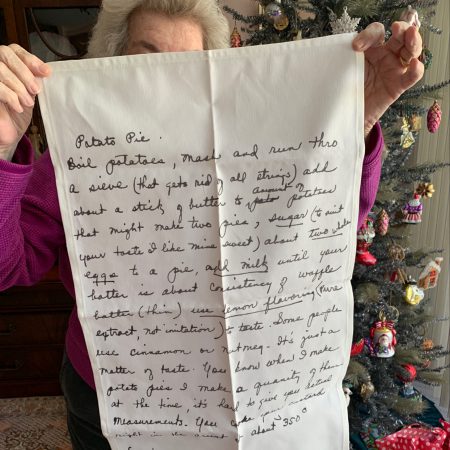 Potato Pie.
Boil potatoes, mash and run thro
a sieve (that gets rid of all strings) add
about a stick of butter to amount of potatoes
that might make two pies, sugar (to suit
your taste I like mine sweet) about two
eggs to a pie, add milk until your
batter is about consistency of waffle
batter (thin) use lemon flavoring (pure
extract, not imitation) to taste. Some people
use cinnamon or nutmeg. It's just a
matter of taste. You know when I make
potato pies I make a quantity of them
at the time, it's hard to give you actual
measurements. You bake your custard
about 350°